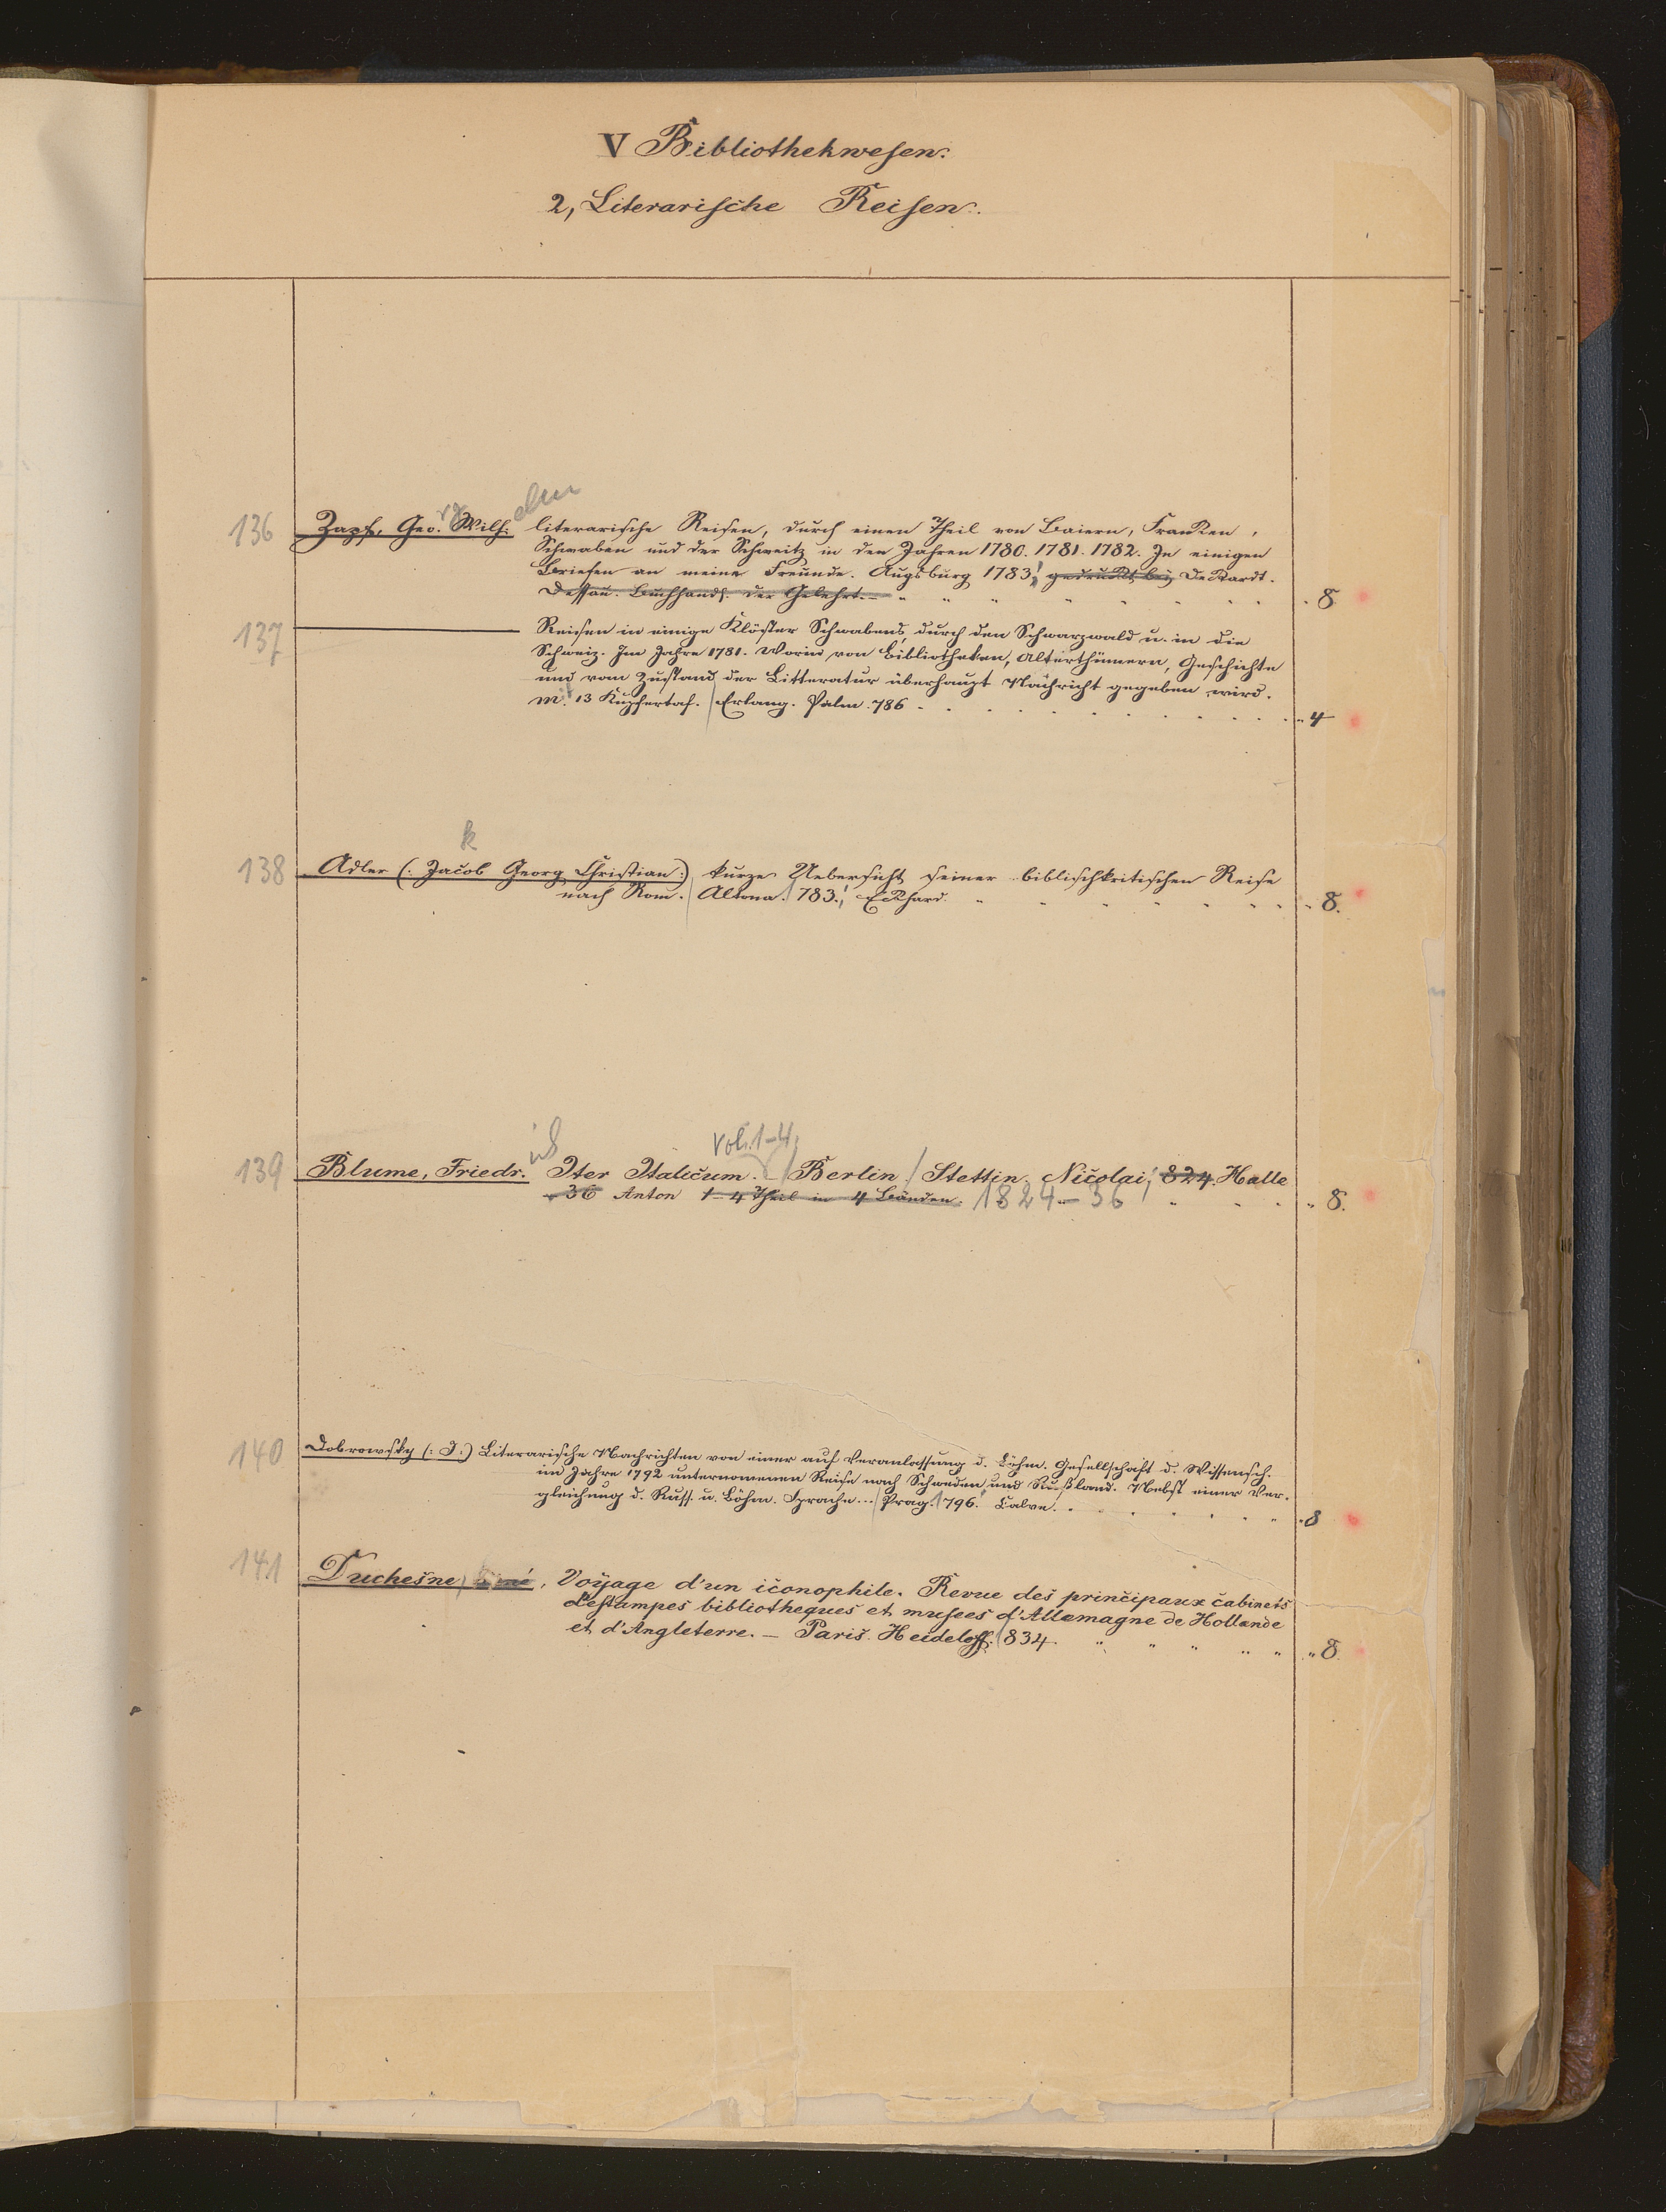 V Bibliothekwesen.
2, Literarische Reisen.
136 Zapf, Geo.rg Wilh.elm literarische Reisen, durch einen Theil von Baiern, Franken,
Schwaben und der Schweitz in den Jahren 1780. 1781. 1782. In einigen
Briefen an meine Freunde. Augsburg 1783, gedruckt bei De Kardt.
Dessau. Buchhandl. der Gelehrt. 8
137 Reisen in einige Klöster Schwabens, durch den Schwarzwald u. in die
Schweiz. Im Jahre 1781. Worin von Bibliotheken, Alterthümern, Geschichte
und vom Zustand der Litteratur überhaupt Nachricht gegeben wird.
m. 13 Kupfertaf. Erlang. Palm. 786 4
k
138 Adler (: Jacob Georg Christian:) kurze Uebersicht seiner biblischkritischen Reise
nach Rom. Altona. 1783. Eckhard. 8.
Vol. 1-4,
139 Blume, Friedr.ich Iter Italicum. Berlin / Stettin. Nicolai, 824. Halle
36 Anton 1-4 Theil in 4 Bänden. 1824-36 8.
140 Dobrowsky (: J:) Literarische Nachrichten von einer auf Veranlassung d. Böhm. Gesellschaft d. Wissensch.
im Jahre 1792 unternomenen Reise nach Schweden und Rußland. Nebst einer Ver-
gleichung d. Russ. u. Böhm. Sprache... Prag. 1796. Calve. 8
141 Duchesne, Voyage d'un iconophile. Revue des principaux cabinets
d'estampes bibliotheques et musees d'Allemagne de Hollande
et d'Angleterre. — Paris. Heideloff. 1834. 8.